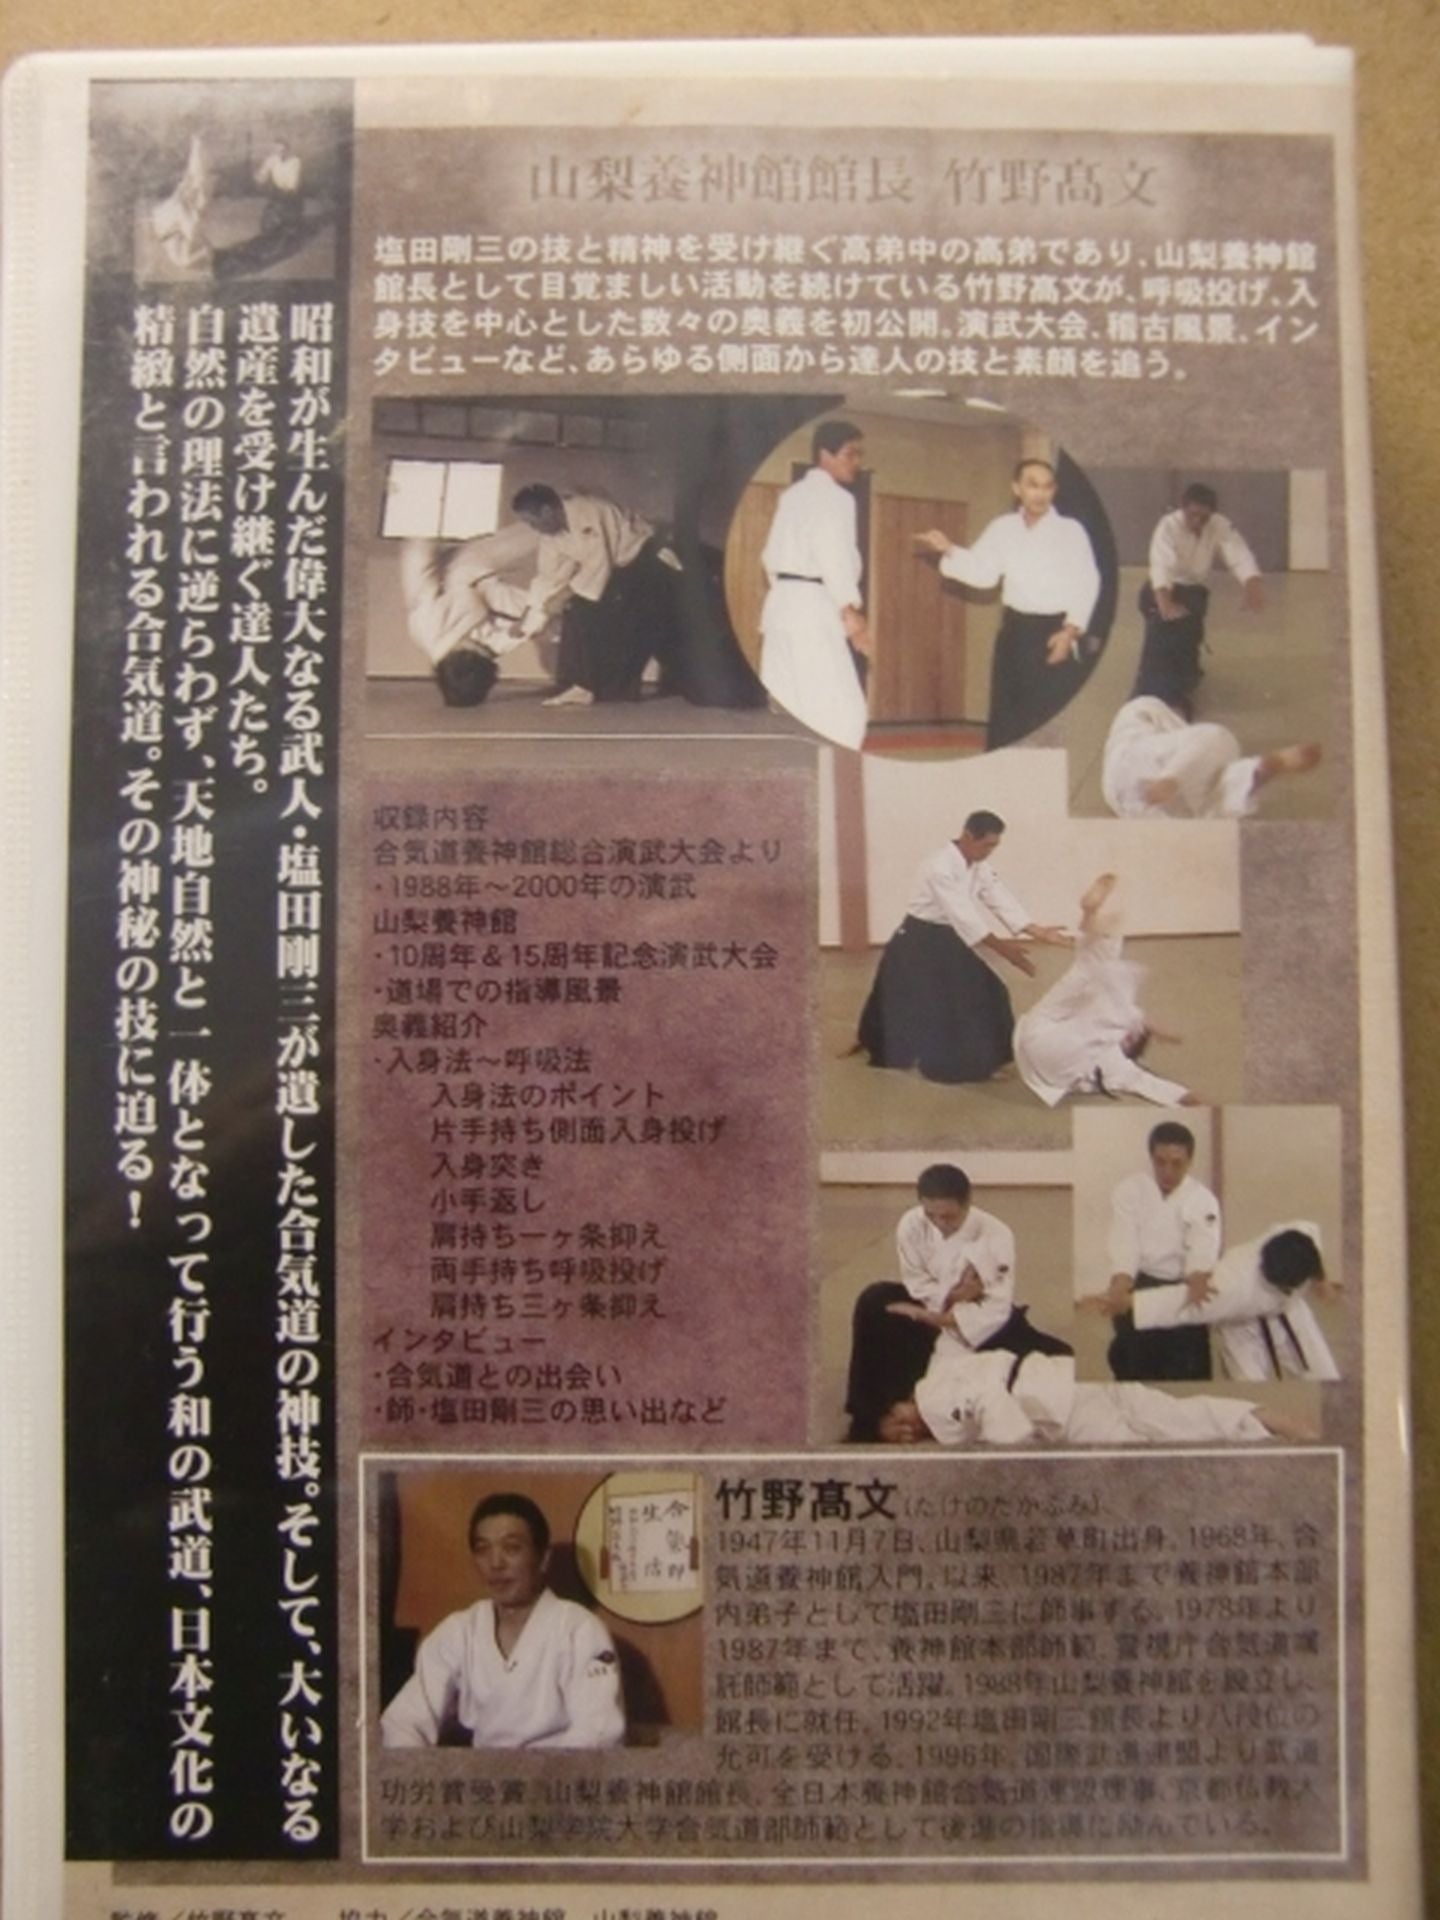 山梨養神館館長 竹野髙文
塩田剛三の技と精神を受け継ぐ高弟中の高弟であり、山梨養神館
館長として目覚ましい活動を続けている竹野髙文が、呼吸投げ、入
身技を中心とした数々の奥義を初公開。演武大会、稽古風景、イン
タビューなど、あらゆる側面から達人の技と素顔を追う。
昭和が生んだ偉大なる武人・塩田剛三が遺した合気道の神技。そして、大いなる
遺産を受け継ぐ達人たち。
自然の理法に逆らわず、天地自然と一体となって行う和の武道、日本文化の
精緻と言われる合気道。その神秘の技に迫る！
収録内容
合気道養神館総合演武大会より
・1988年～2000年の演武
山梨養神館
・10周年＆15周年記念演武大会
・道場での指導風景
奥義紹介
・入身法～呼吸法
入身法のポイント
片手持ち側面入身投げ
入身突き
小手返し
肩持ち一ヶ条抑え
両手持ち呼吸投げ
肩持ち三ヶ条抑え
インタビュー
・合気道との出会い
・師・塩田剛三の思い出など
竹野髙文(たけのたかふみ)
1947年11月7日、山梨県若草町出身。1968年、合
気道養神館入門。以来、1987年まで養神館本部
内弟子として塩田剛三に師事する。1978年より
1987年まで、養神館本部師範、警視庁合気道嘱
託師範として活躍。1988年山梨養神館を設立し、
館長に就任。1992年塩田剛三館長より八段位の
允可を受ける。1996年、国際武道連盟より武道
功労賞受賞。山梨養神館館長、全日本養神館合気道連盟理事、京都仏教大
学および山梨学院大学合気道部師範として後進の指導に励んでいる。
監修／竹野髙文 協力／合気道養神館 山梨養神館